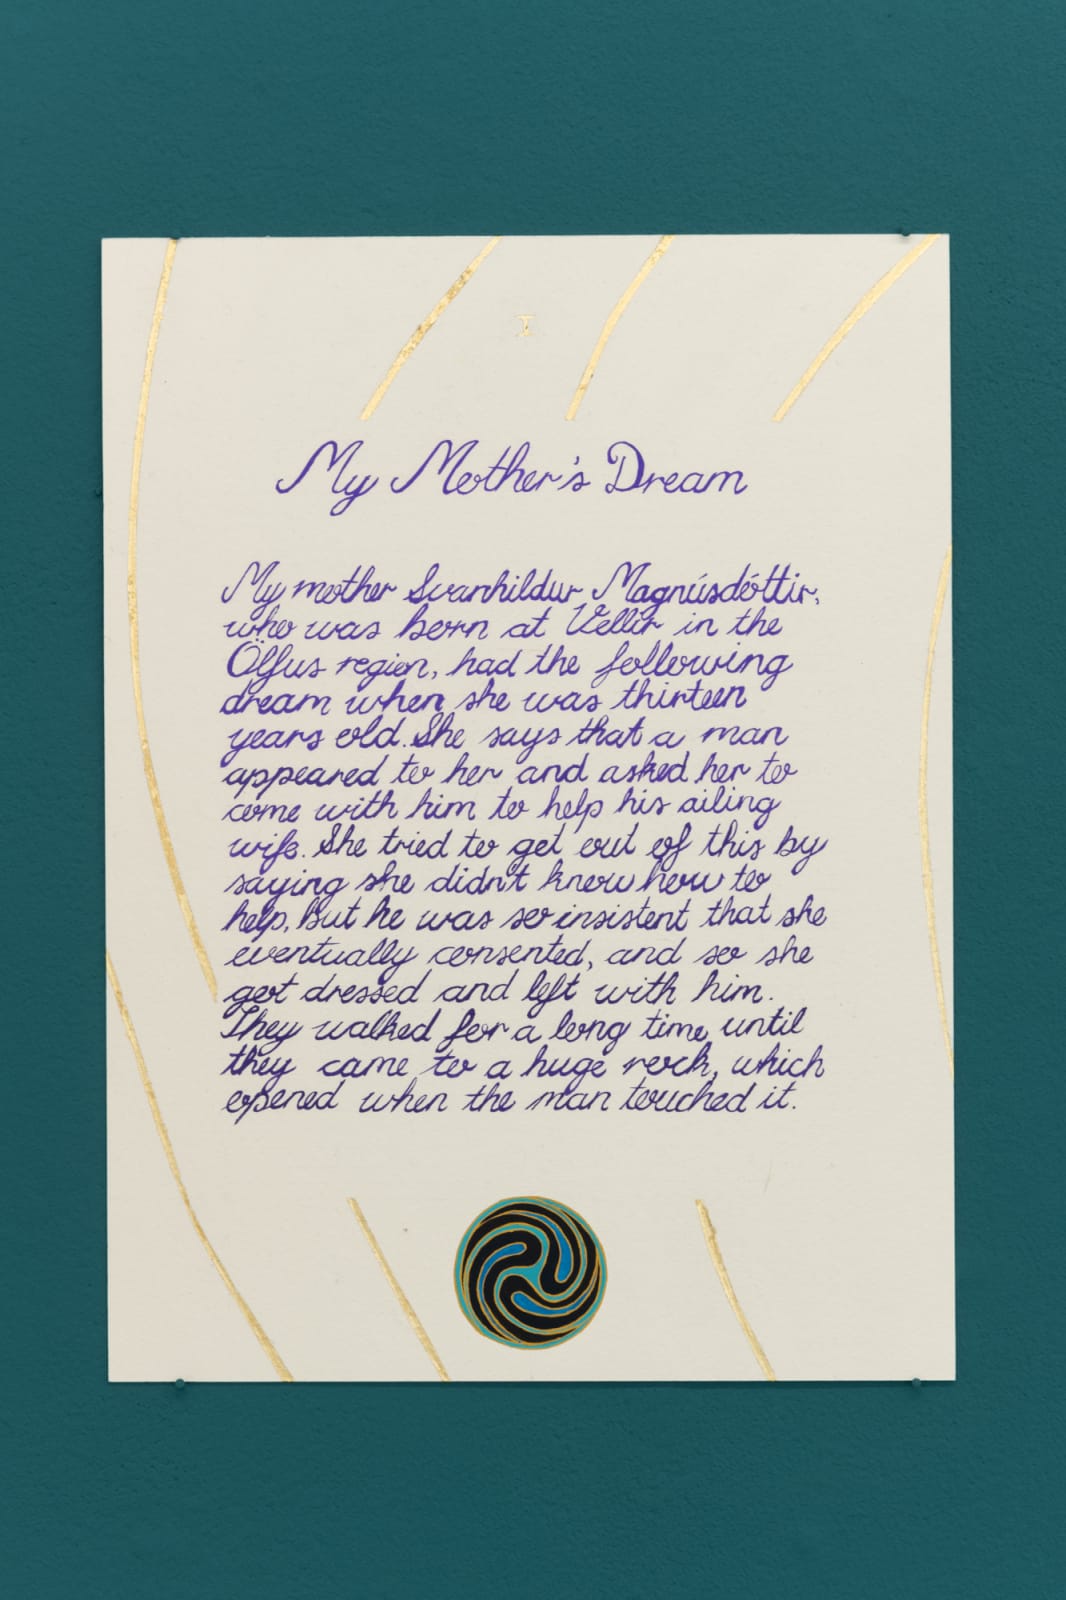 I
My Mother's Dream
My mother Svanhildur Magnúsdóttir,
who was born at Vellir in the
Ölfus region, had the following
dream when she was thirteen
years old. She says that a man
appeared to her and asked her to
come with him to help his ailing
wife. She tried to get out of this by
saying she didn't know how to
help, But he was so insistent that she
eventually consented, and so she
got dressed and left with him.
They walked for a long time until
they came to a huge rock, which
opened when the man touched it.